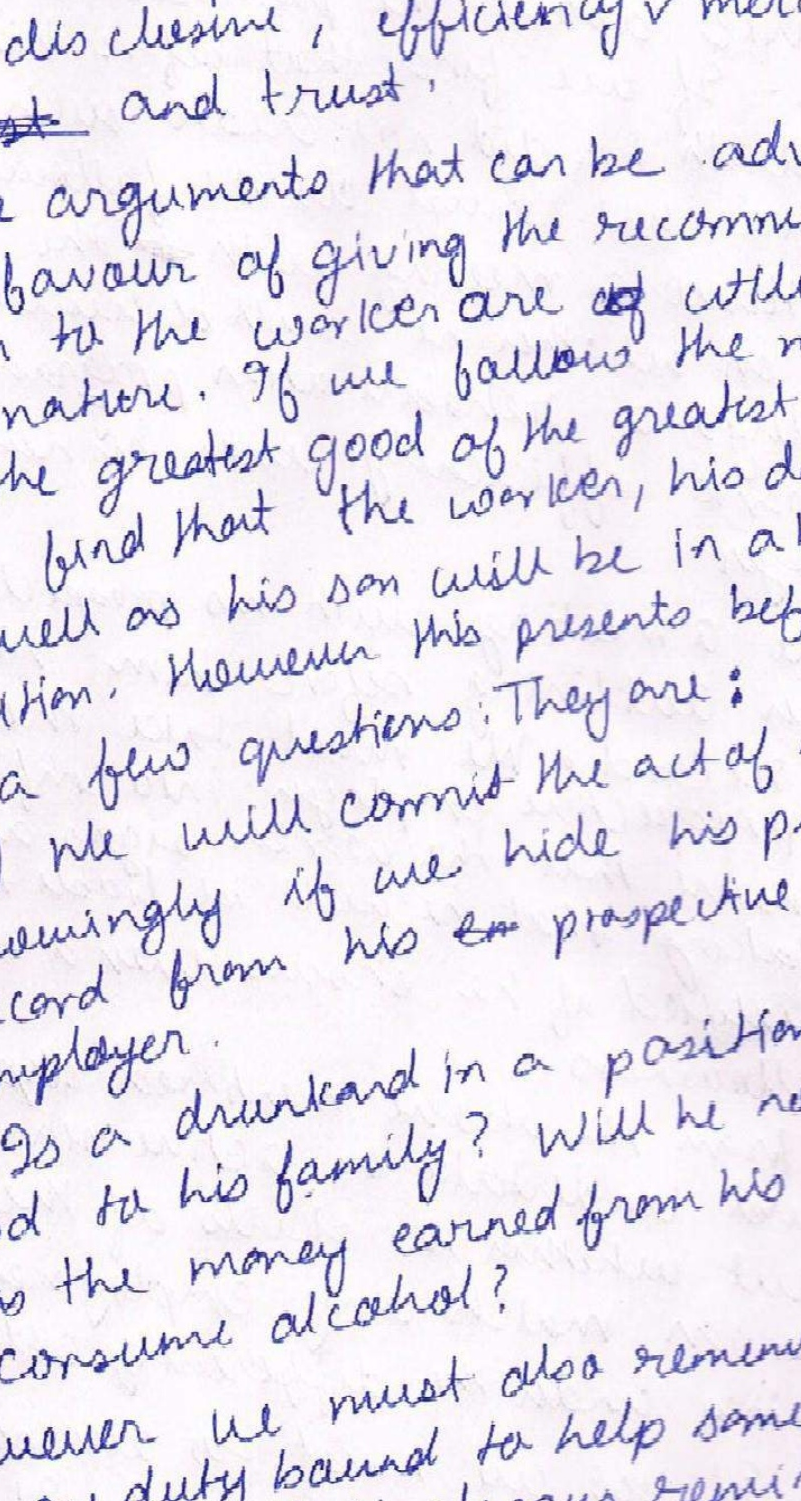 disclosure, efficiency, mer
and trust.
e arguments that can be adv
favour of giving the recomme
n to the worker are of utili
nature. If we follow the m
he greatest good of the greatest
find that the worker, his d
well as his son will be in a b
ation. However this presents bef
a few questions. They are:
We will commit the act of
owingly if we hide his p
cord from his prospective
mployer.
Is a drunkard in a position
d to his family? Will he no
s the money earned from his
consume alcohol?
wever we must also remem
duty bound to help some